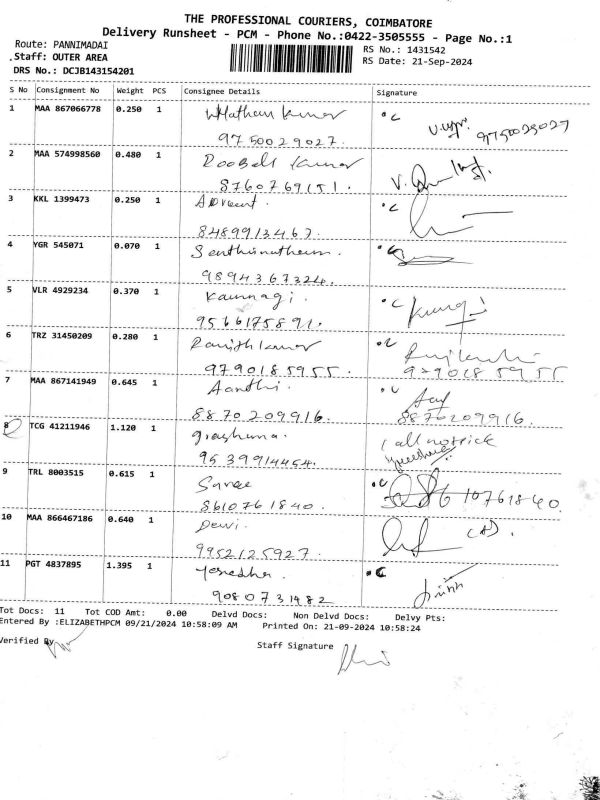 THE PROFESSIONAL COURIERS, COIMBATORE
Delivery Runsheet - PCM - Phone No.:0422-3505555 - Page No.:1
Route: PANNIMADAI
RS No.: 1431542
Staff: OUTER AREA
RS Date: 21-Sep-2024
DRS No.: DCJB143154201
S No Consignment No Weight PCS Consignee Details Signature
1 MAA 867066778 0.250 1 Kumar
9750029027. 9750029027
2 MAA 574998560 0.480 1 Kumar
8760769151.
3 KKL 1399473 0.250 1
8489913463.
4 YGR 545071 0.070 1
9894367324.
5 VLR 4929234 0.370 1 Kannagi.
9566175891.
6 TRZ 31450209 0.280 1 Ranjith Kumar
9790185955. 9790185955
7 MAA 867141949 0.645 1 Aarthi.
8870209916. 8870209916.
8 TCG 41211946 1.120 1 call not pick
9539914454.
9 TRL 8003515 0.615 1
8610761840.
10 MAA 866467186 0.640 1 Devi.
9952125927.
11 PGT 4837895 1.395 1
9080731482
Tot Docs: 11 Tot COD Amt: 0.00 Delvd Docs: Non Delvd Docs: Delvy Pts:
Entered By :ELIZABETHPCM 09/21/2024 10:58:09 AM Printed On: 21-09-2024 10:58:24
Verified By
Staff Signature